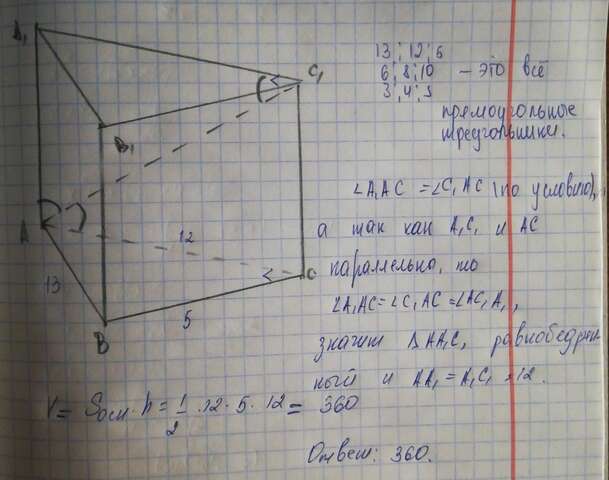 A₁
C₁
B₁
A
12
C
13
B
5
13; 12; 5
6; 8; 10 – это все
3; 4; 5
прямоугольные
треугольники.
∠A₁AC = ∠C₁AC (по условию),
а так как A₁C₁ и AC
параллельно, то
∠A₁AC = ∠C₁AC = ∠AC₁A₁,
значит △AA₁C₁ равнобедрен
ный и AA₁ = A₁C₁ = 12.
V = Sосн · h = 1/2 · 12 · 5 · 12 = 360
Ответ: 360.